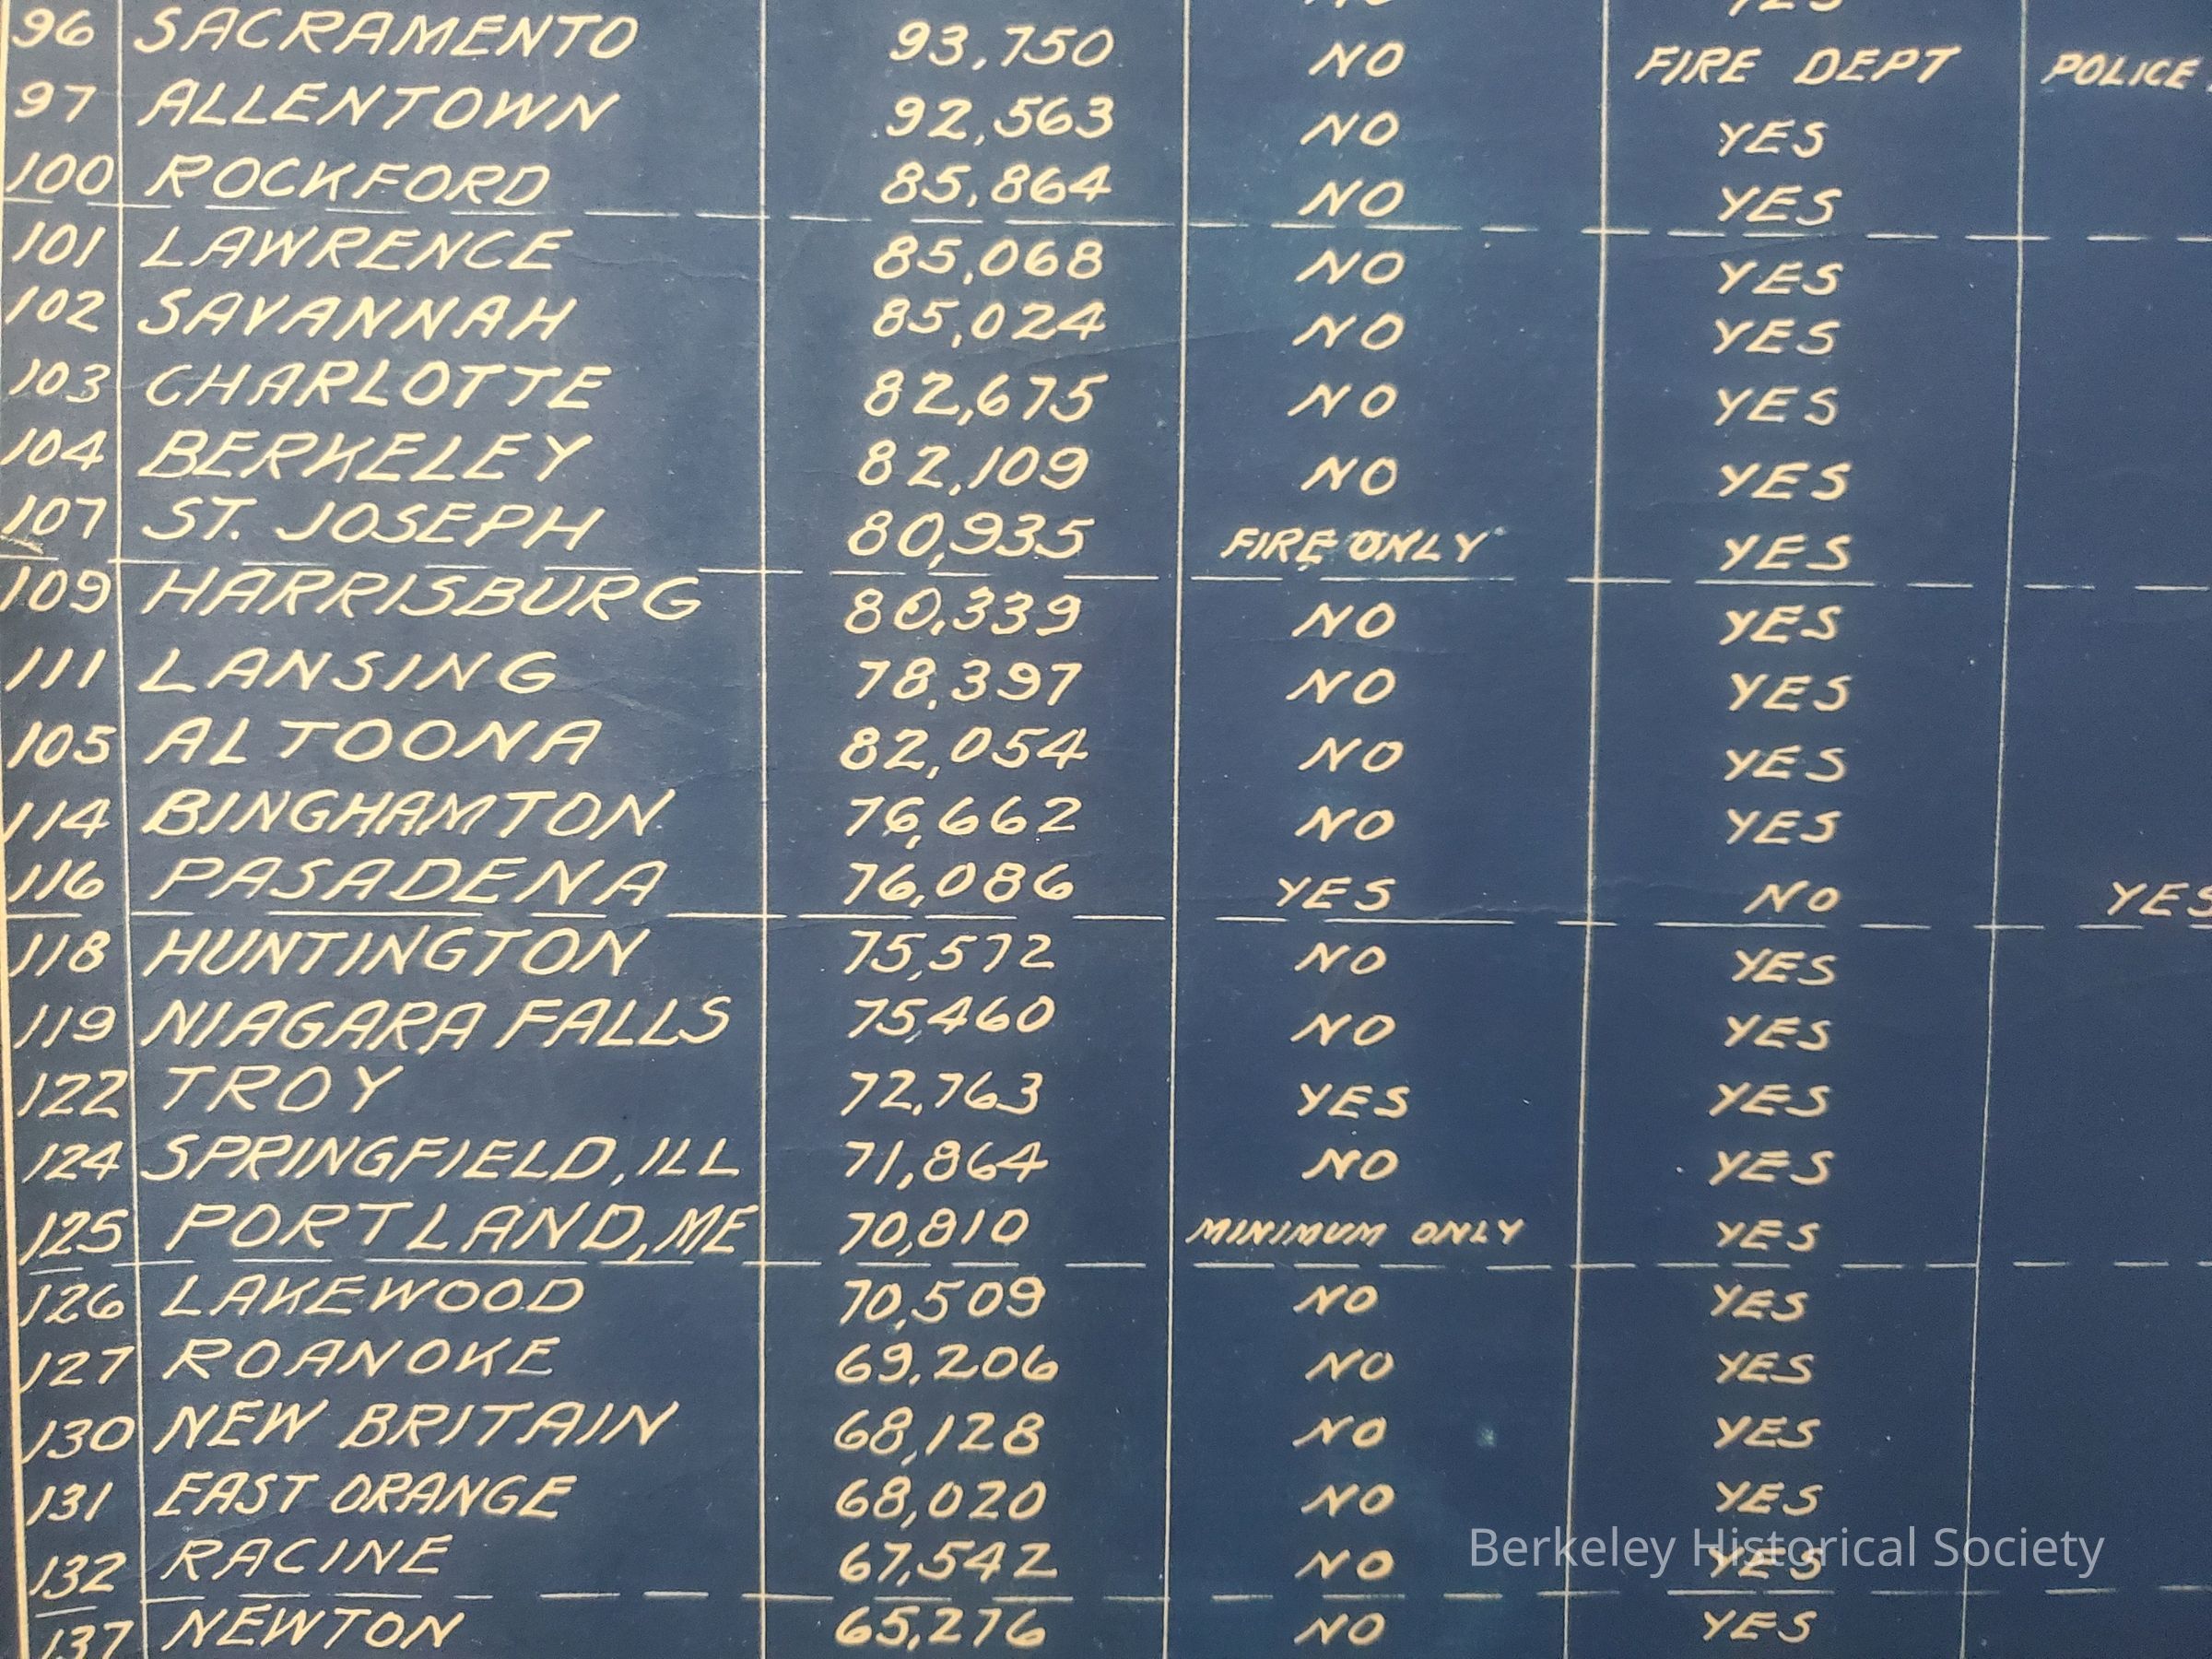 96 SACRAMENTO 93,750 NO FIRE DEPT POLICE
97 ALLENTOWN 92,563 NO YES
100 ROCKFORD 85,864 NO YES
101 LAWRENCE 85,068 NO YES
102 SAVANNAH 85,024 NO YES
103 CHARLOTTE 82,675 NO YES
104 BERKELEY 82,109 NO YES
107 ST. JOSEPH 80,935 FIRE ONLY YES
109 HARRISBURG 80,339 NO YES
111 LANSING 78,397 NO YES
105 ALTOONA 82,054 NO YES
114 BINGHAMTON 76,662 NO YES
116 PASADENA 76,086 YES NO YES
118 HUNTINGTON 75,572 NO YES
119 NIAGARA FALLS 75,460 NO YES
122 TROY 72,763 YES YES
124 SPRINGFIELD, ILL 71,864 NO YES
125 PORTLAND, ME 70,810 MINIMUM ONLY YES
126 LAKEWOOD 70,509 NO YES
127 ROANOKE 69,206 NO YES
130 NEW BRITAIN 68,128 NO YES
131 EAST ORANGE 68,020 NO YES
132 RACINE 67,542 NO YES
137 NEWTON 65,276 NO YES
Berkeley Historical Society